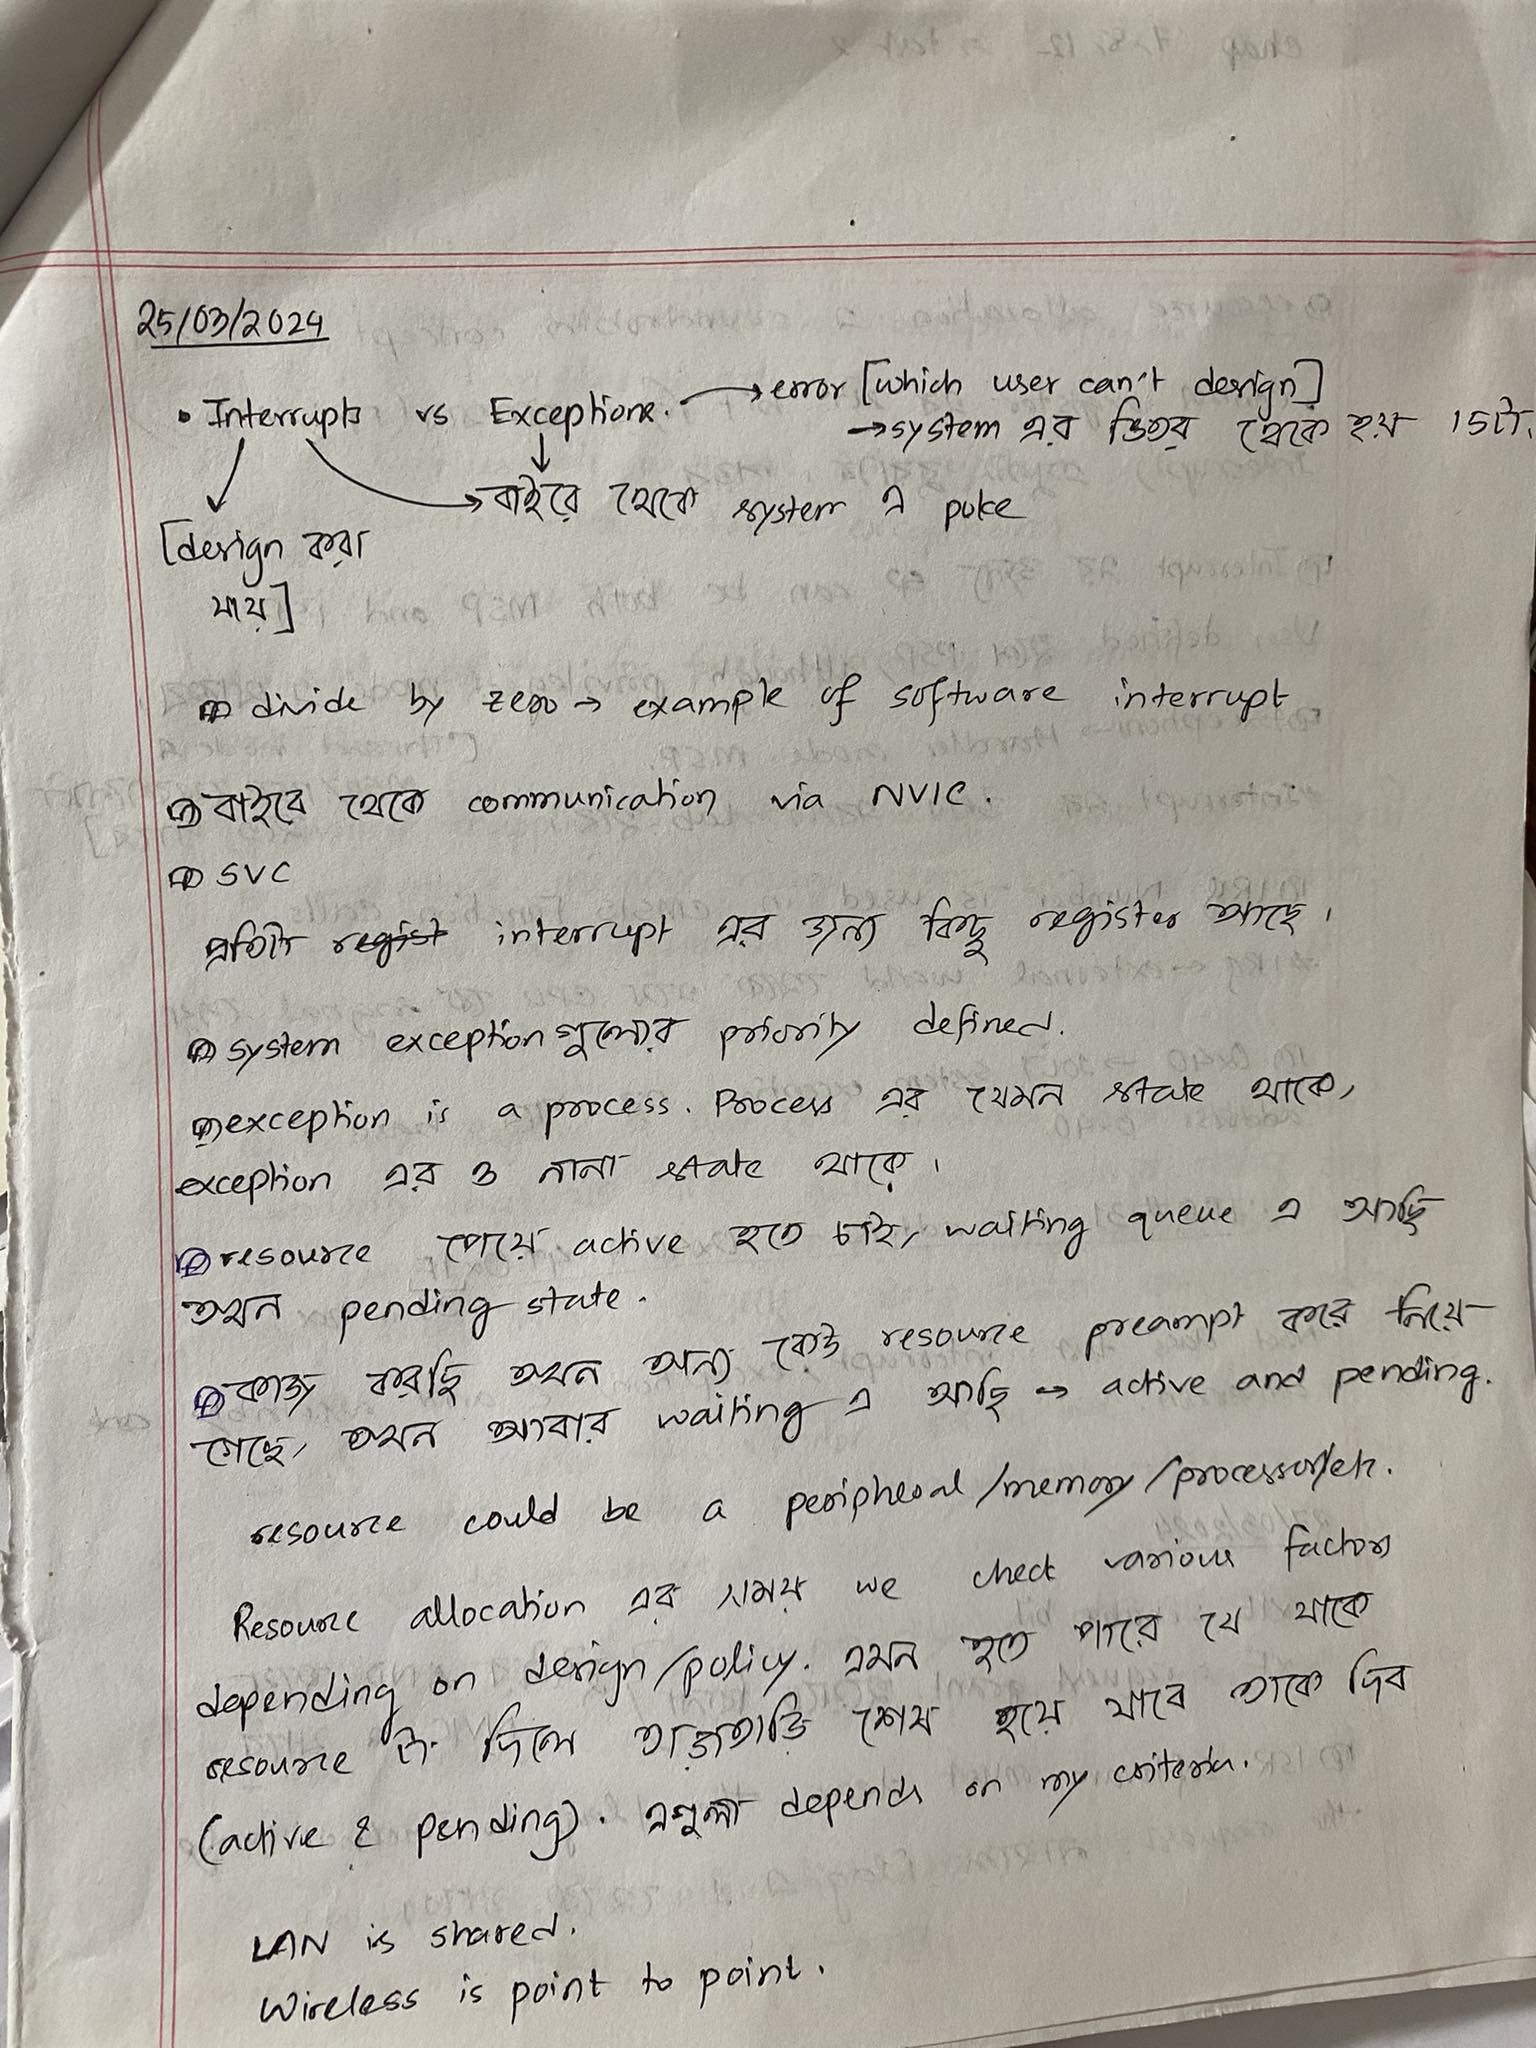 25/03/2024
• Interrupts vs Exceptions. → error [which user can't design]
→ system এর ভিতর থেকে হয় 15টা.
→ বাইরে থেকে system এ poke
[design করা
যায়]
divide by zero → example of software interrupt
বাইরে থেকে communication via NVIC.
SVC
প্রতিটা regist interrupt এর জন্য কিছু register আছে।
system exception গুলোর priority defined.
exception is a process. Process এর যেমন state থাকে,
exception এর ও নানা state থাকে।
resource পেয়ে active হতে চাই, waiting queue এ আছি
তখন pending state.
কাজ করছি তখন অন্য কেউ resource preampt করে নিয়ে
গেছে, তখন আবার waiting এ আছি → active and pending.
resource could be a peripheral/memory/processor/etc.
Resource allocation এর সময় we check various factors
depending on design/policy. এমন হতে পারে যে যাকে
resource টা দিলে তাড়াতাড়ি শেষ হয়ে যাবে তাকে দিব
(active & pending). এগুলা depends on my criteria.
LAN is shared.
Wireless is point to point.